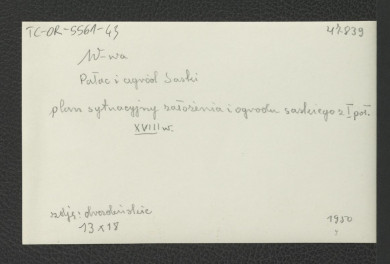 TC-OR-5561-43 47.839
W-wa
Pałac i ogród Saski
plan sytuacyjny założenia i ogrodu saskiego z I poł.
XVIII w.
zdję:
13 x 18 1950
?